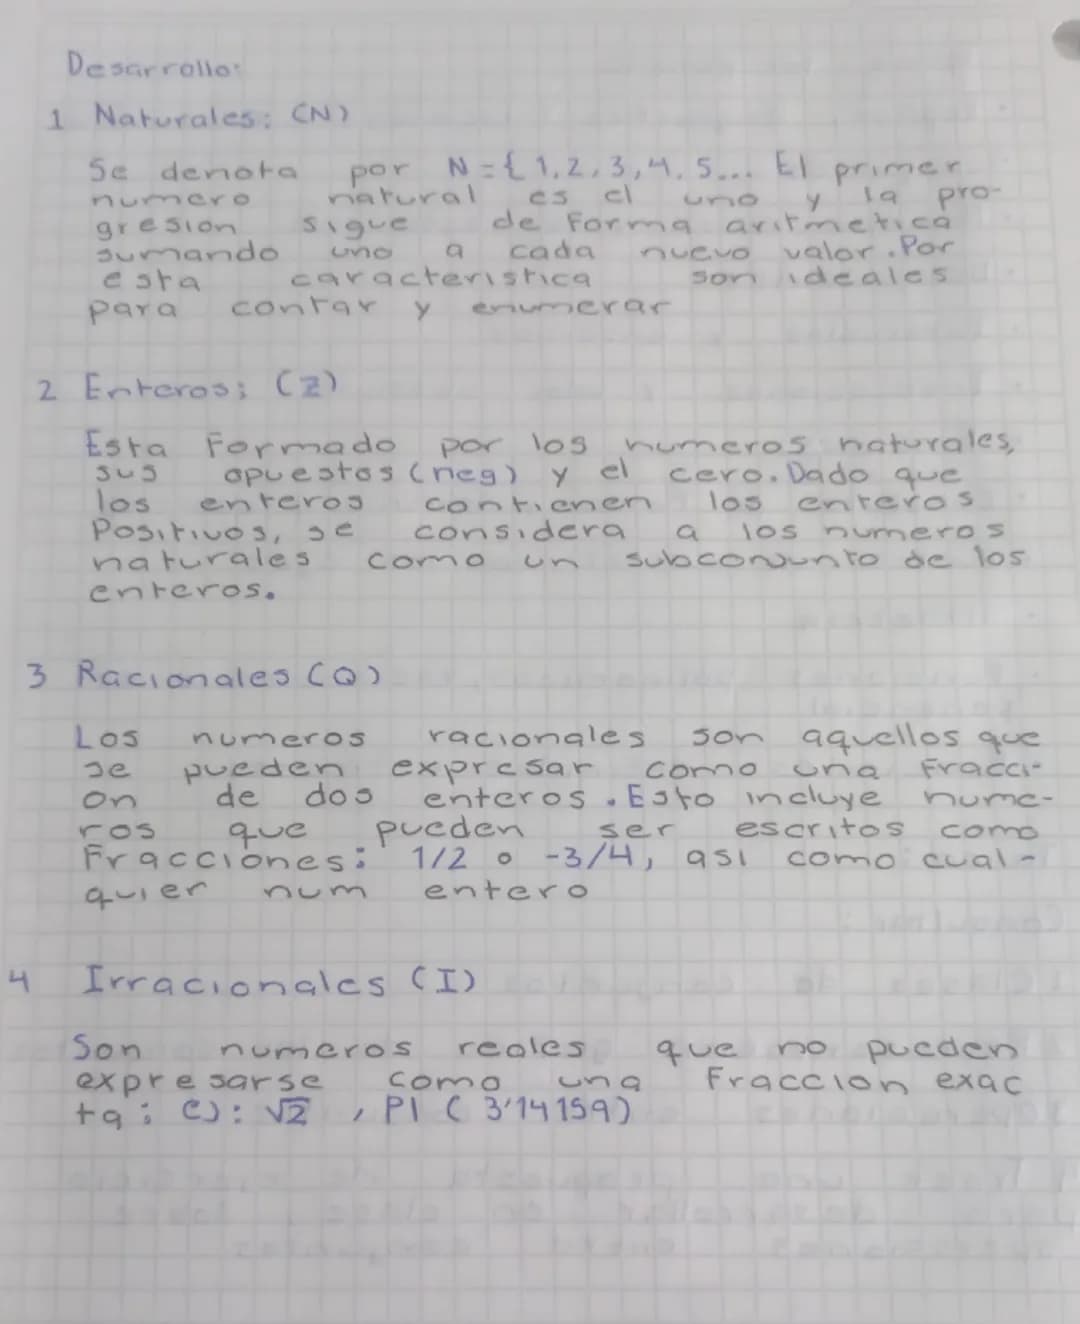 Desarrollo:
1 Naturales: (N)
Se denota por N={1,2,3,4,5... El primer
numero natural es el uno y la pro-
gresion sigue de forma aritmetica
sumando uno a cada nuevo valor. Por
esta caracteristica son ideales
para contar y enumerar
2 Enteros; (Z)
Esta formado por los numeros naturales,
sus opuestos (neg) y el cero. Dado que
los enteros contienen los enteros
Positivos, se considera a los numeros
naturales como un subconunto de los
enteros.
3 Racionales (Q)
Los numeros racionales son aquellos que
se pueden expresar como una fracci-
on de dos enteros. Esto incluye nume-
ros que pueden ser escritos como
Fracciones: 1/2 o -3/4, asi como cual-
quier num entero
4 Irracionales (I)
Son numeros reales que no pueden
expresarse como una fraccion exac
ta; ej: √2 , PI (3'14159)